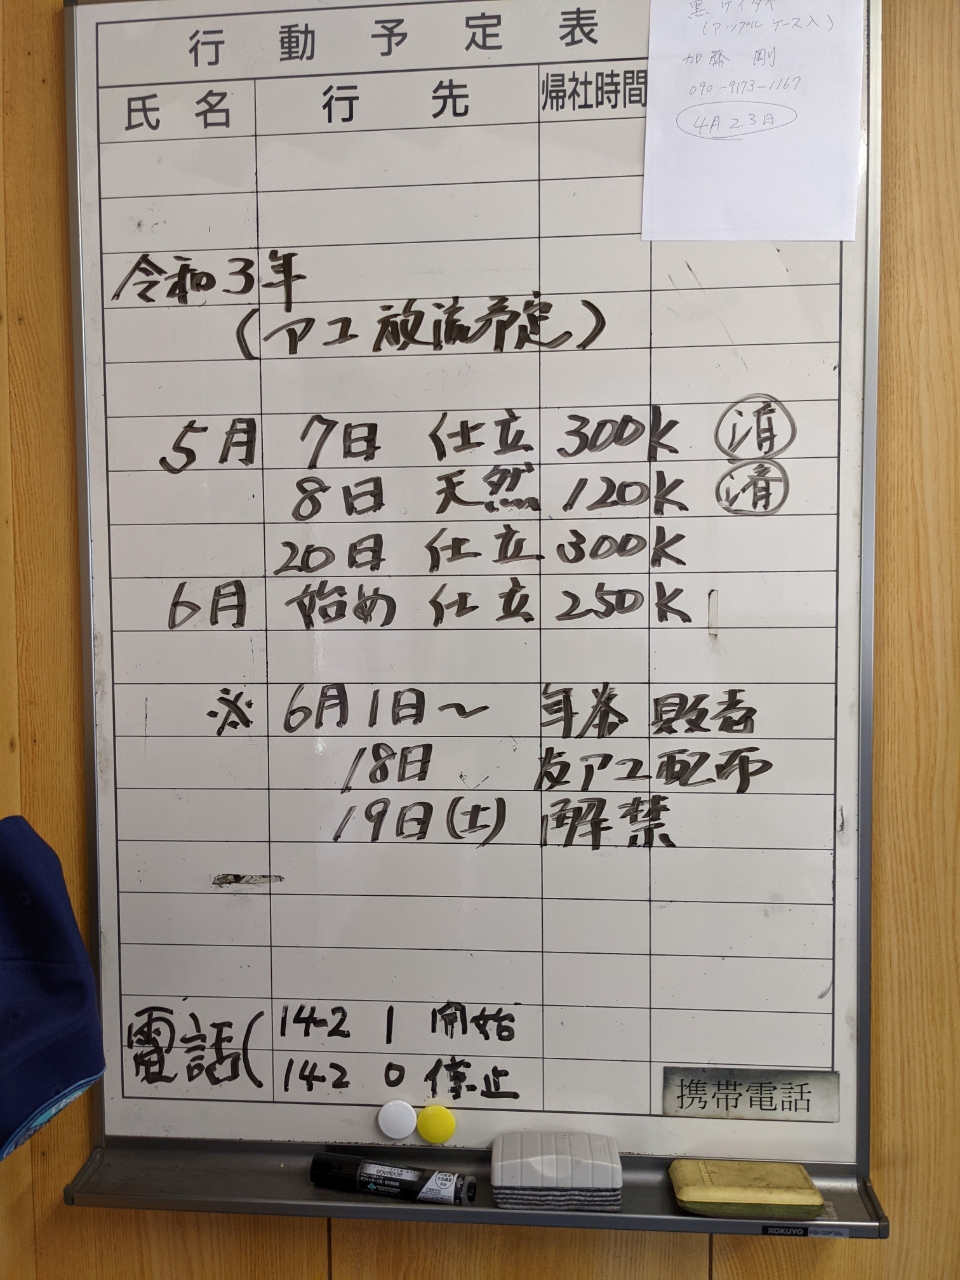 行動予定表
氏名 行先 帰社時間
黒 ケイタイ
(アップル ケース入)
加藤 剛
090-9173-1167
4月23日
令和3年
(アユ放流予定)
5月 7日 仕立 300K 済
8日 天然 120K 済
20日 仕立 300K
6月 始め 仕立 250K
※ 6月1日~ 年券 販売
18日 友アユ配布
19日(土) 解禁
電話( 142 1 開始
142 0 停止
携帯電話
KOKUYO